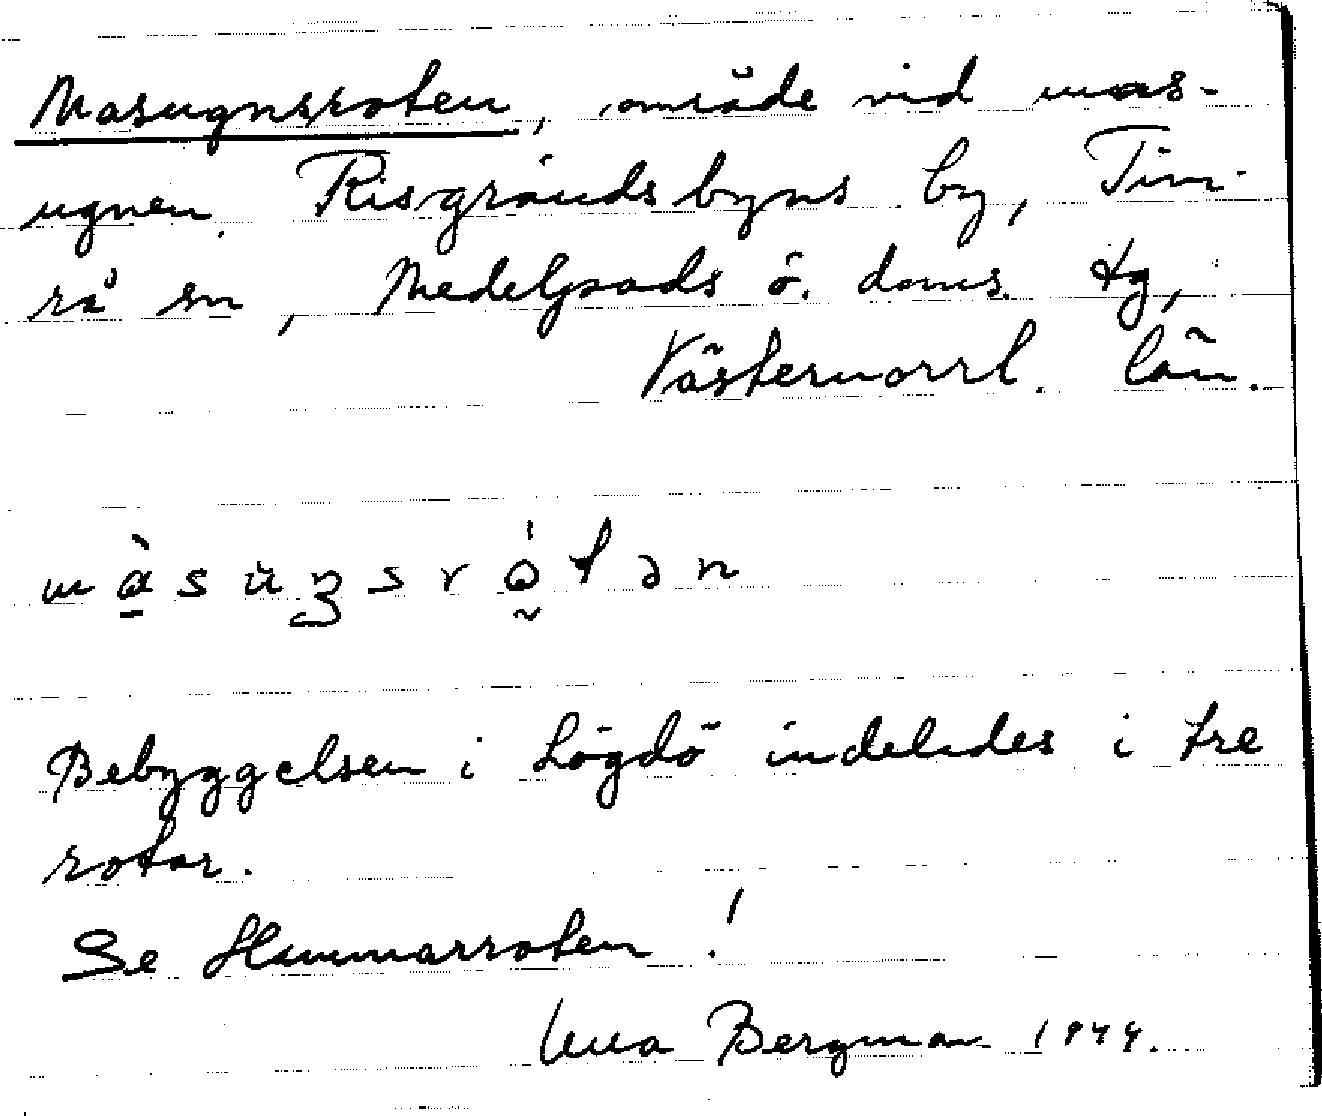 Masugnsroten, område vid mas-
ugnen, Risgrändsbyns by, Tim-
rå sn, Medelpads ö. doms. tg,
Västernorrl. län.
Bebyggelsen i Lögdö indelades i tre
rotar.
Se Hammarroten!
Bergman 1944.